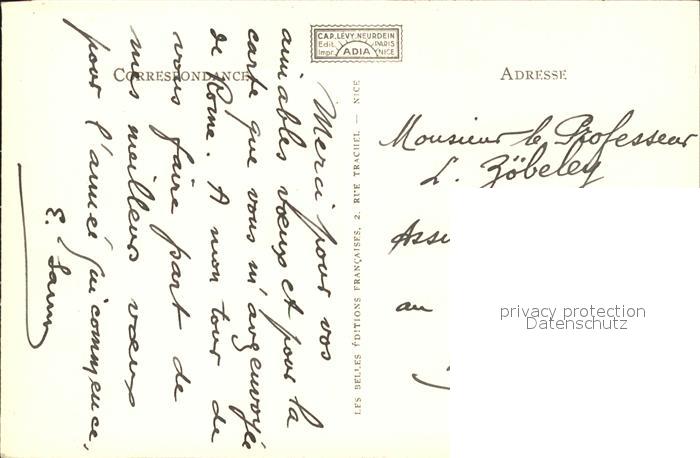 CORRESPONDANCE
CAP. LÉVY-NEURDEIN
Edit. PARIS
Impr. ADIA NICE
Merci pour vos
aimables vœux et pour la
carte que vous m'avez envoyée
de Rome. A mon tour de
vous faire part de
mes meilleurs vœux
pour l'année qui commence.
E.
LES BELLES ÉDITIONS FRANÇAISES, 2, RUE TRACHEL. — NICE
ADRESSE
Monsieur le Professeur
L. Zöbeley
au
privacy protection
Datenschutz